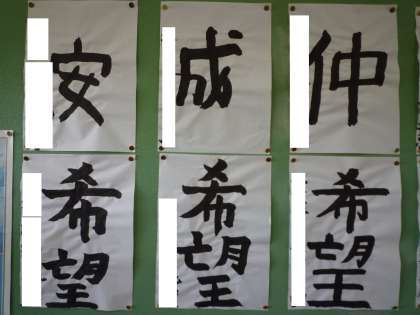 安
成
仲
希望
希望
希望